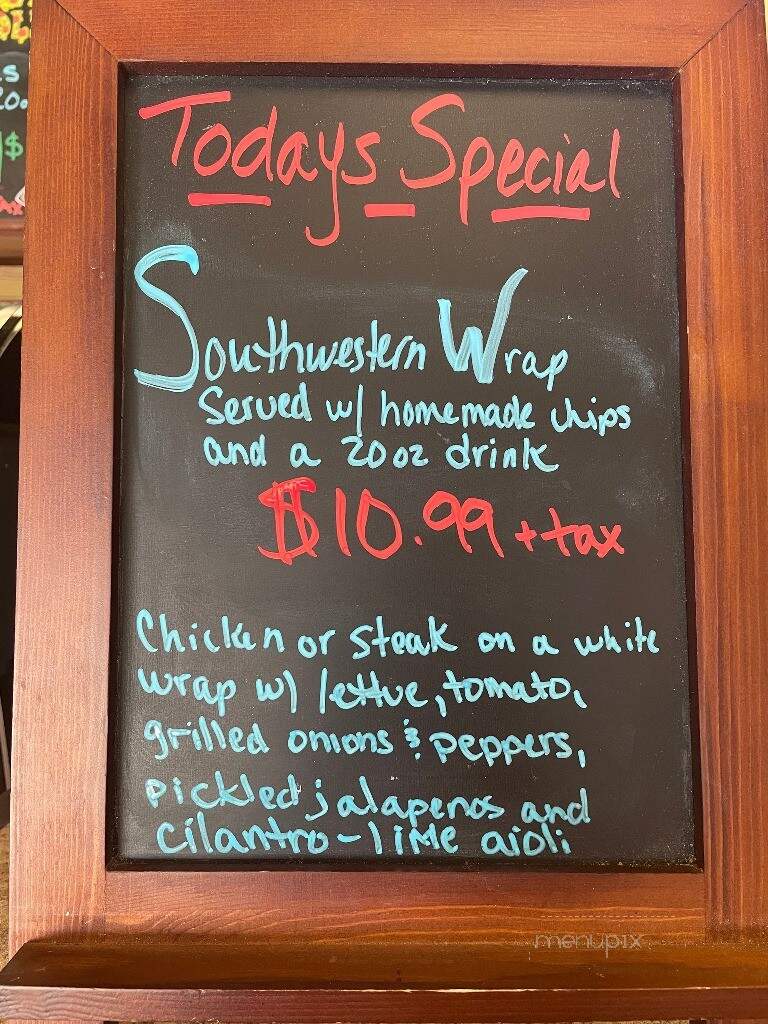 Todays Special
Southwestern Wrap
Served w/ homemade chips
and a 20oz drink
$10.99 + tax
Chicken or steak on a white
wrap w/ lettue, tomato,
grilled onions & peppers,
pickled jalapenos and
cilantro-lime aioli
menupix